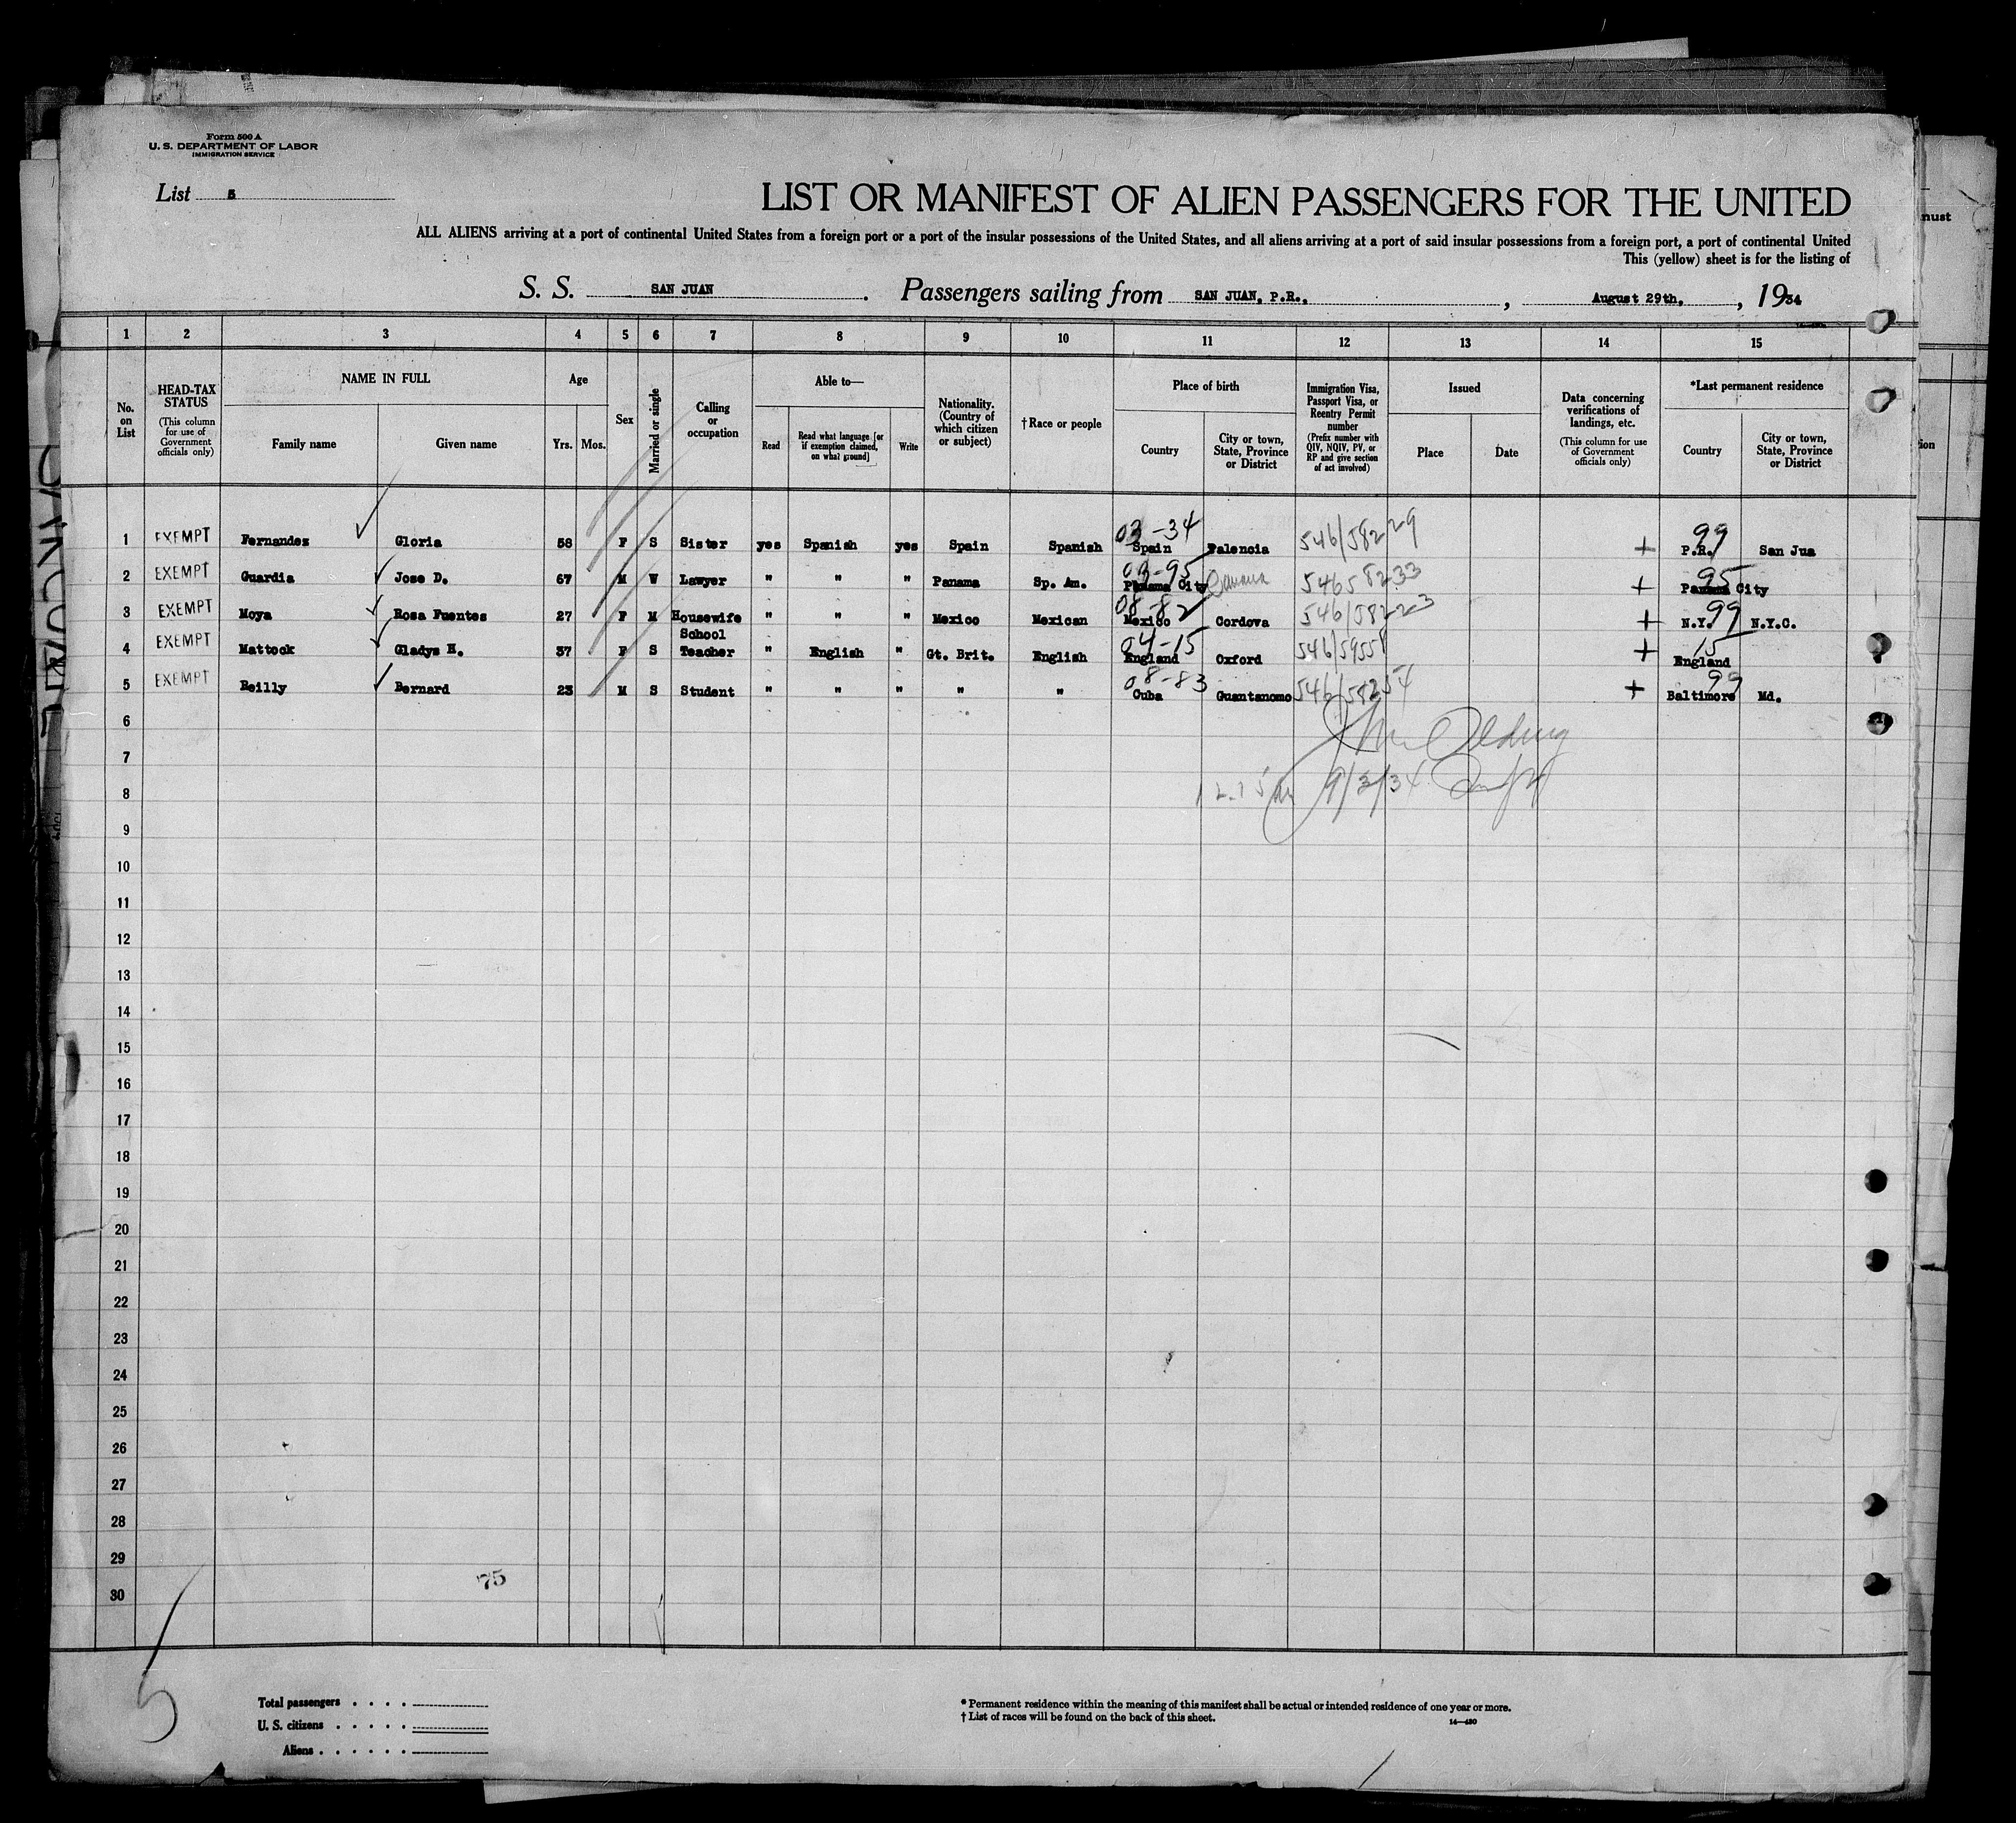 Form 500 A
U. S. DEPARTMENT OF LABOR
IMMIGRATION SERVICE
List 5
LIST OR MANIFEST OF ALIEN PASSENGERS FOR THE UNITED
ALL ALIENS arriving at a port of continental United States from a foreign port or a port of the insular possessions of the United States, and all aliens arriving at a port of said insular possessions from a foreign port, a port of continental United
This (yellow) sheet is for the listing of
S. S. SAN JUAN . Passengers sailing from SAN JUAN, P.R., , August 29th, , 1934
1 2 3 4 5 6 7 8 9 10 11 12 13 14 15
No. on List
HEAD-TAX STATUS (This column for use of Government officials only)
NAME IN FULL
Family name Given name
Age
Yrs. Mos.
Sex
Married or single
Calling or occupation
Able to—
Read Read what language [or if exemption claimed, on what ground] Write
Nationality. (Country of which citizen or subject)
†Race or people
Place of birth
Country City or town, State, Province or District
Immigration Visa, Passport Visa, or Reentry Permit number (Prefix number with QIV, NQIV, PV, or RP and give section of act involved)
Issued
Place Date
Data concerning verifications of landings, etc. (This column for use of Government officials only)
*Last permanent residence
Country City or town, State, Province or District
03-34 99
1 EXEMPT Fernandez Gloria 58 F S Sister yes Spanish yes Spain Spanish Spain Palencia 546/58229 + P.R. San Jua
03-95 95
2 EXEMPT Guardia Jose D. 67 M W Lawyer " " " Panama Sp. Am. Panama City Panama 54658233 + Panama City
08-82 99
3 EXEMPT Moya Rosa Fuentes 27 F M Housewife " " " Mexico Mexican Mexico Cordova 546/58223 + N.Y. N.Y.C.
04-15 15
4 EXEMPT Mattock Gladys H. 37 F S School Teacher " English " Gt. Brit. English England Oxford 546/59551 + England
08-83 99
5 EXEMPT Reilly Bernard 23 M S Student " " " " " Cuba Guantanomo 546/58254 + Baltimore Md.
6
7
9/3/34
8
9
10
11
12
13
14
15
16
17
18
19
20
21
22
23
24
25
26
27
28
29
75
30
5
Total passengers . . . .
U. S. citizens . . . . .
Aliens . . . . . .
* Permanent residence within the meaning of this manifest shall be actual or intended residence of one year or more.
† List of races will be found on the back of this sheet.
14—430